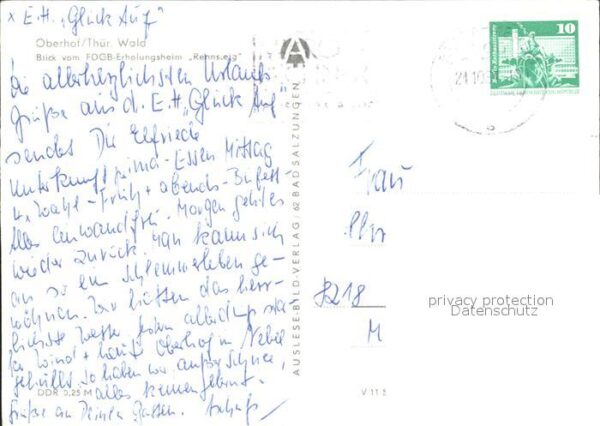 x E.H. „Glück Auf"
Oberhof/Thür. Wald
Blick vom FDGB-Erholungsheim „Rennsteig"
Die allerherzlichsten Urlaubs-
grüße aus d. E.H. „Glück Auf"
sendet Dir Elfriede
Unterkunft prima - Essen Mittag
Wahl - Früh + abends - Büfett
Alles einwandfrei. Morgen geht es
wieder zurück. Man kann sich
an so ein Schlemmerleben ge-
wöhnen. Wir hatten das herr-
lichste Wetter
Wind + Oberhof in Nebel
gehüllt so haben wir außer Schnee,
alles kennengelernt.
Grüße an Deinen Gatten.
DDR 0,25 M
V 11 5
AUSLESE-BILD-VERLAG / 62 BAD SALZUNGEN
10
DEUTSCHE DEMOKRATISCHE REPUBLIK
21.10
Frau
8218
M
privacy protection
Datenschutz